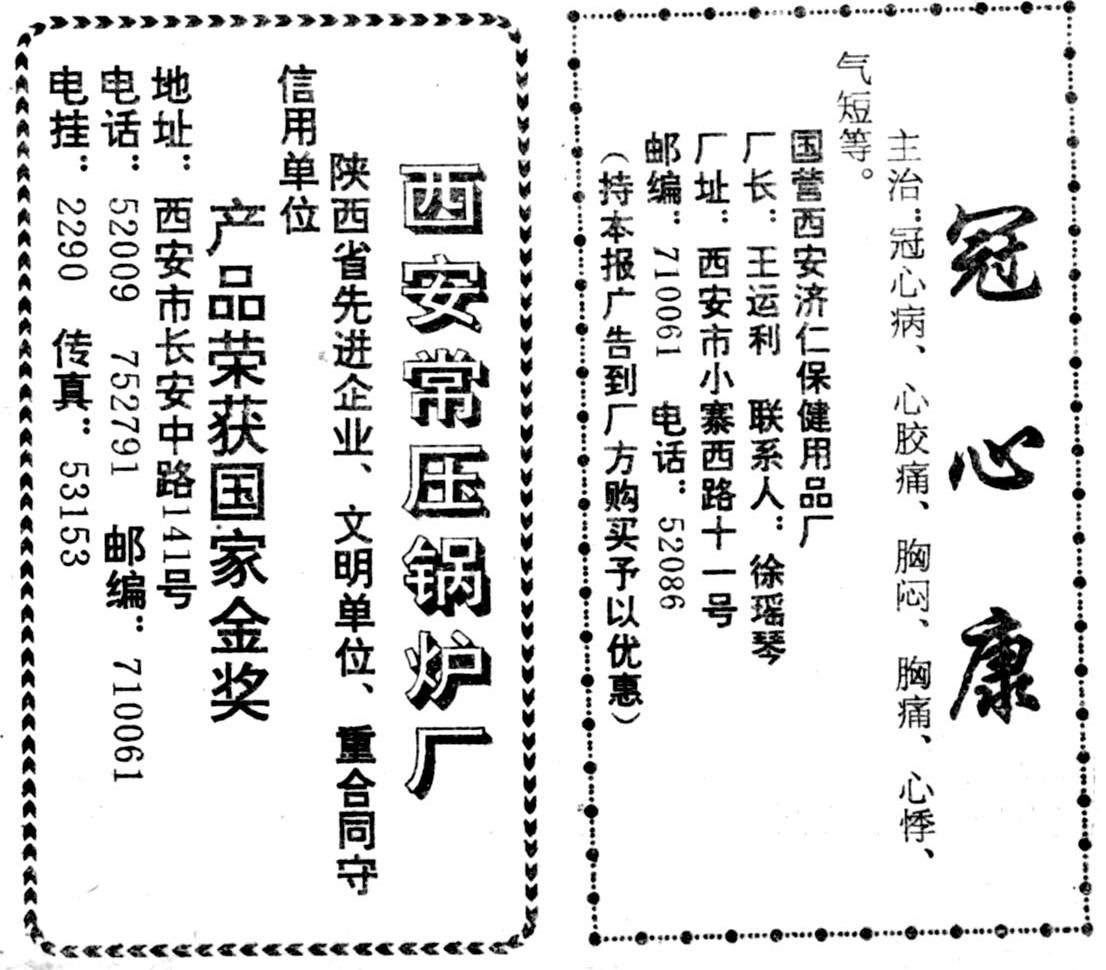 冠心康
主治:冠心病、心胶痛、胸闷、胸痛、心悸、
气短等。
国营西安济仁保健用品厂
厂长：王运利 联系人：徐瑶琴
厂址：西安市小寨西路十一号
邮编：710061 电话：52086
（持本报广告到厂方购买予以优惠）
西安常压锅炉厂
陕西省先进企业、文明单位、重合同守
信用单位
产品荣获国家金奖
地址：西安市长安中路141号
电话：52009 752791 邮编：710061
电挂：2290 传真：53153